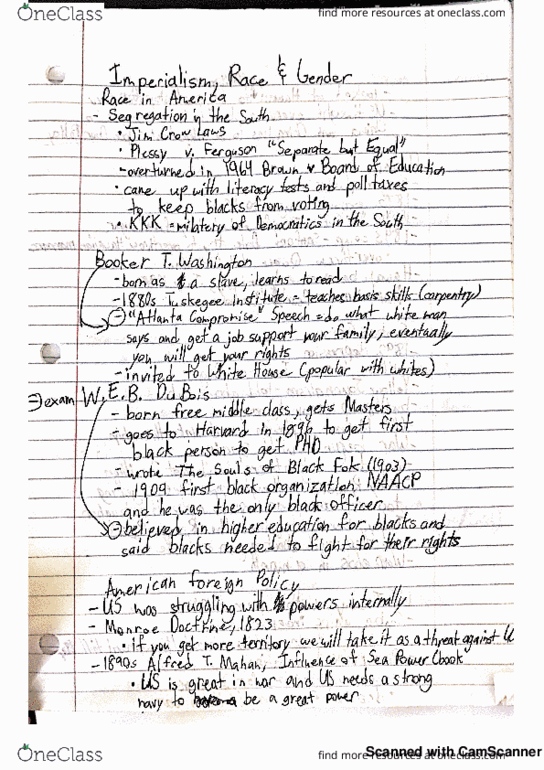 OneClass
find more resources at oneclass.com
Imperialism, Race & Gender
Race in America
- Segregation in the South
• Jim Crow Laws
• Plessy v. Ferguson "Separate but Equal"
- overturned in 1964 Brown v Board of Education
• came up with literacy tests and poll taxes
to keep blacks from voting
• KKK = milatery of Democratics in the South
Booker T. Washington
- born as a slave, learns to read
- 1880s Tuskegee Institute = teaches basis skills (carpentry)
"Atlanta Compromise" Speech = do what white man
says and get a job support your family; eventually
you will get your rights
- invited to White House (popular with whites)
exam W.E.B. DuBois
- born free middle class, gets Masters
- goes to Harvard in 1896 to get first
black person to get PHD
- wrote The Souls of Black Fok (1903)
- 1909 first black organization: NAACP
and he was the only black officer
believed in higher education for blacks and
said blacks needed to fight for their rights
American foreign Policy
- US was struggling with powers internally
- Monroe Doctrine, 1823
• if you get more territory we will take it as a threat against U
- 1890s Alfred T. Mahan, Influence of Sea Power (book
• US is great in war and US needs a strong
navy to be a great power
OneClass
find more resources at oneclass.com
Scanned with CamScanner